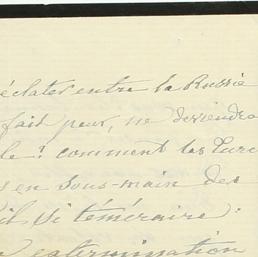 éclater entre la Russie
fait peur, ne deviendra
le? comment les Turc
s en sous-main des
il si téméraire.
extermination